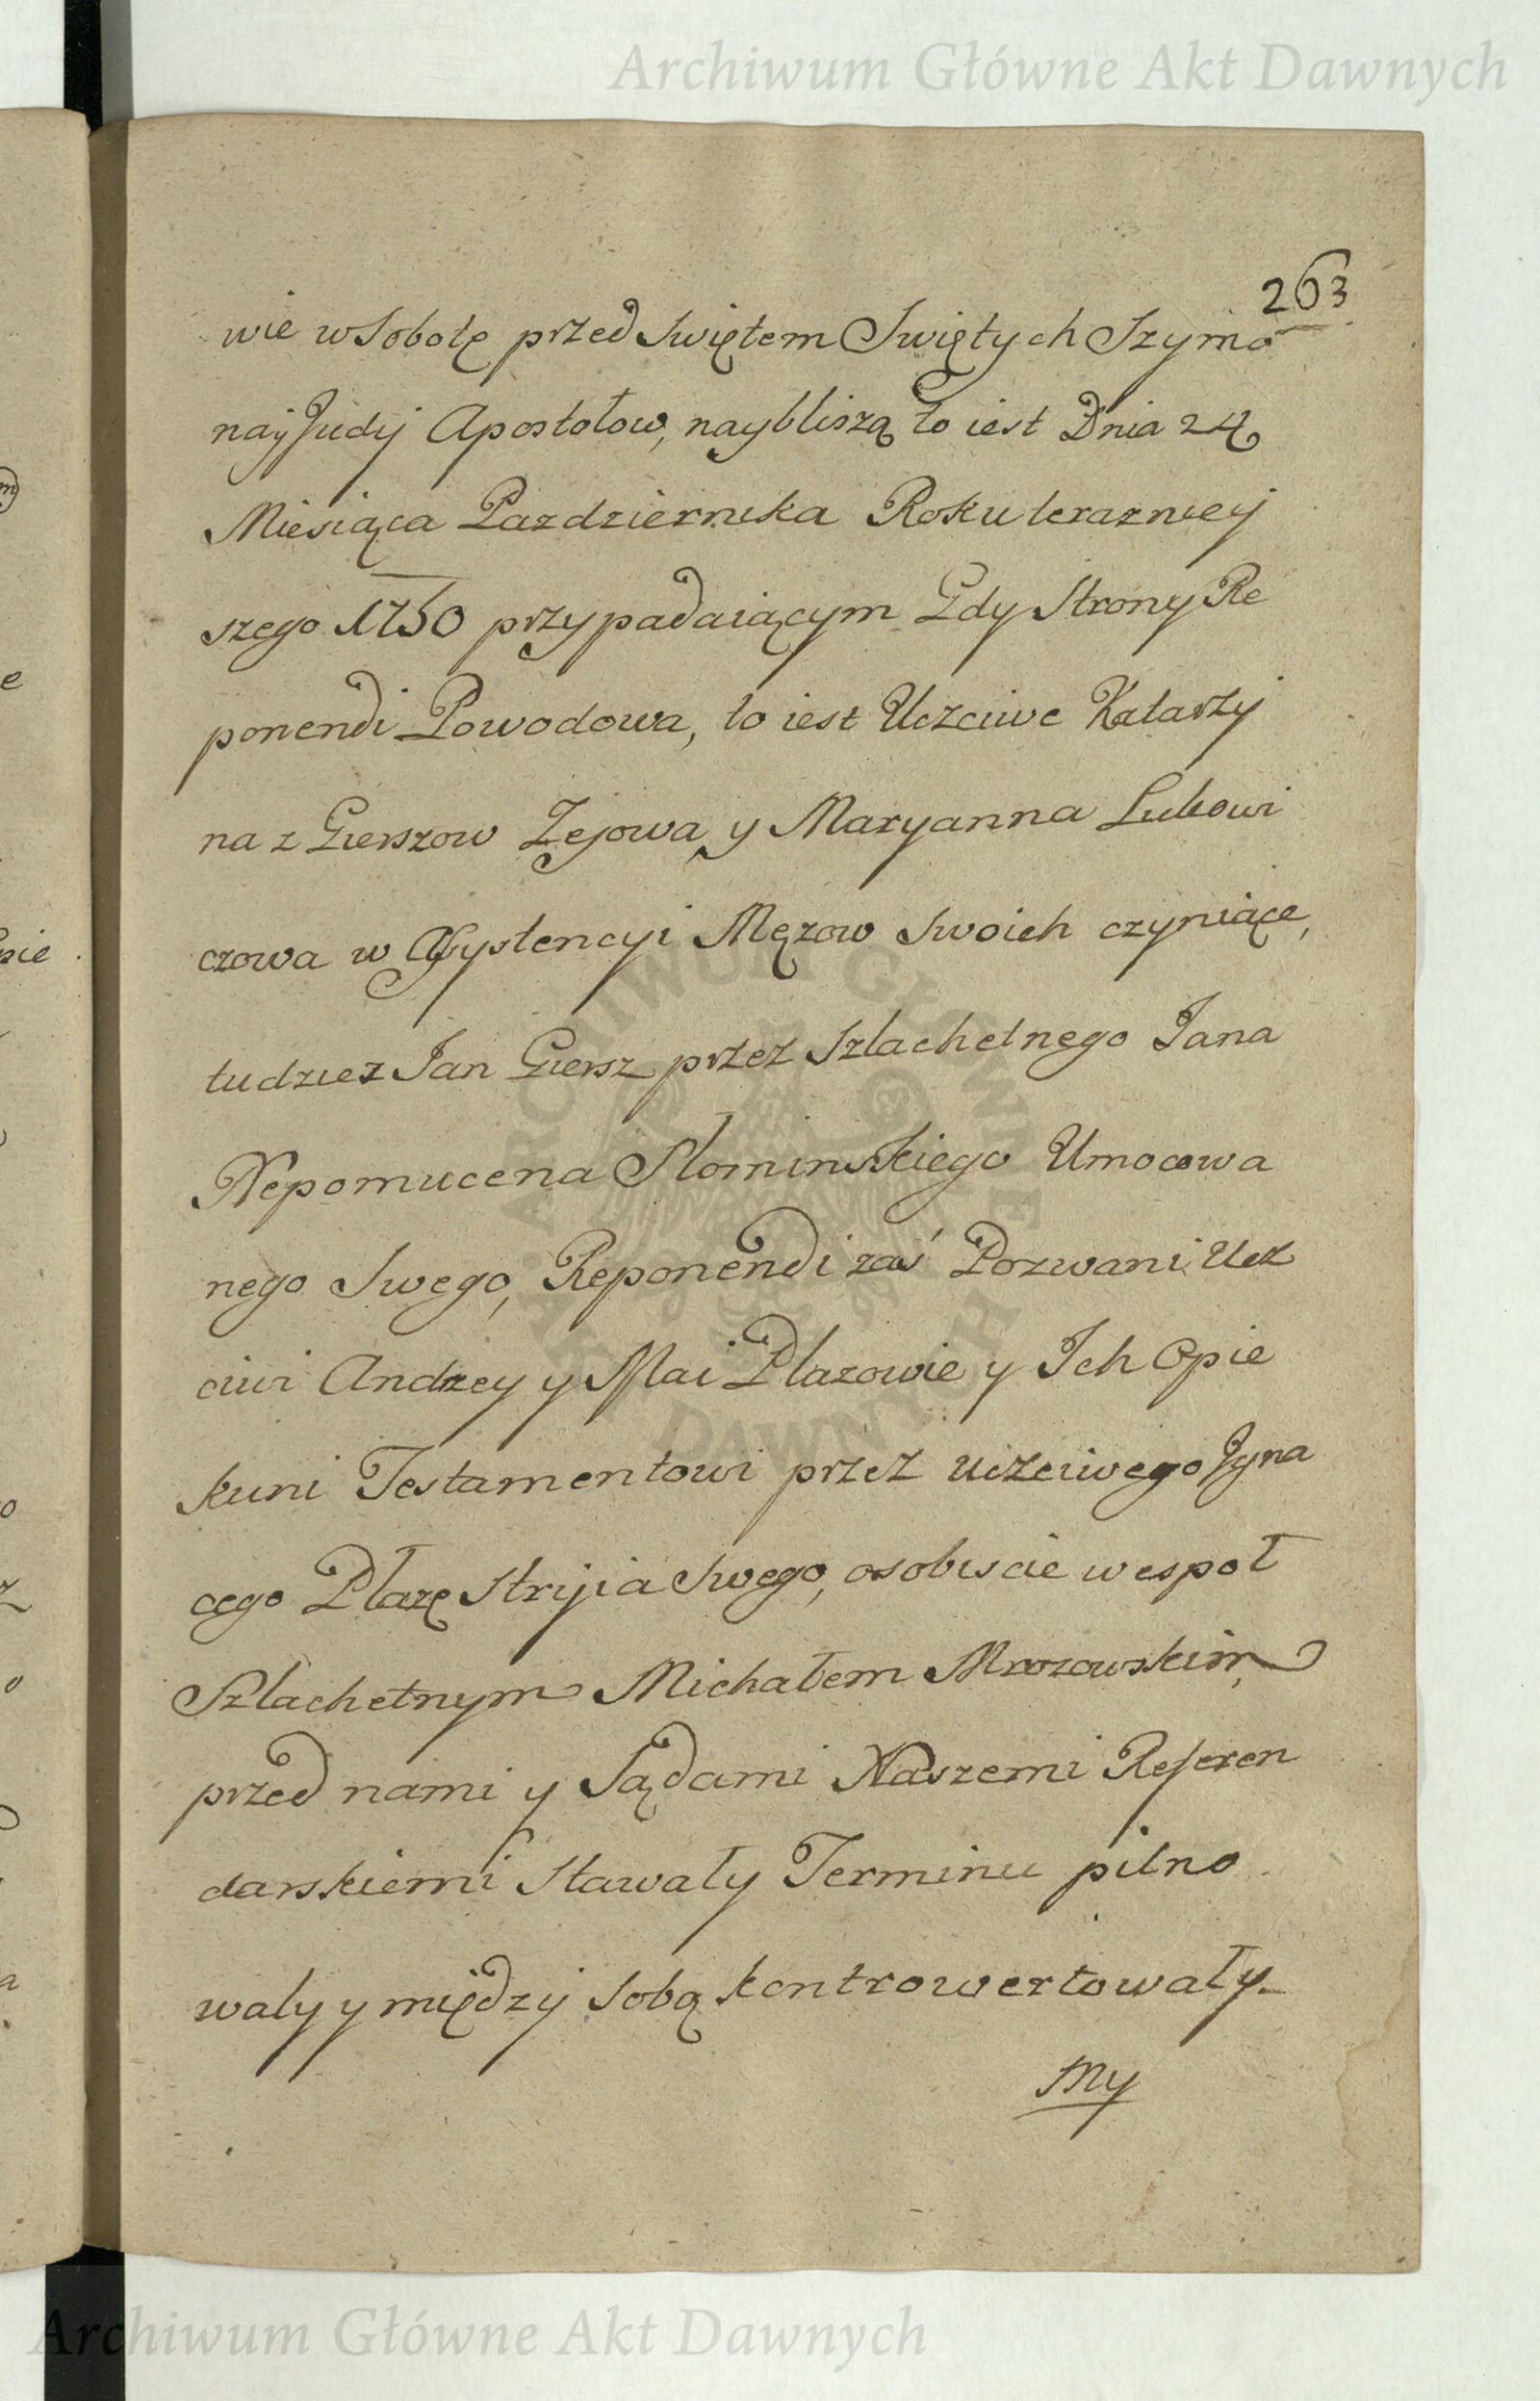 Archiwum Główne Akt Dawnych
263
wie w Sobotę przed Swiętem Swiętych Szymo
na ÿ Judÿ Apostołow, nayblisza to iest Dnia 24
Miesiąca Pazdziernika Roku teraznieÿ
szego 1750 przypadaiącym Gdy Strony Re
ponendi Powodowa, to iest Uczciwe Katarzÿ
na z Gierszow Zejowa y Maryanna Lukowi
czowa w Assystencyi Męzow Swoich czyniące,
tudziez Jan Giersz przez Szlachetnego Jana
Nepomucena Slominskiego Umocowa
nego Swego, Reponendi zaś Pozwani Ucz
ciwi Andrzey y Mai Plazowie y Ich Opie
kuni Testamentowi przez Uczciwego Jgna
cego Płazę Strÿia Swego, osobiscie wespoł
Szlachetnym Michałem Mrozowskim,
przed nami y Sądami Naszemi Referen
darskiemi Stawały Terminu pilno
waly y między Sobą kontrowertowały.
My
ARCHIWUM GŁÓWNE AKT DAWNYCH
Archiwum Główne Akt Dawnych